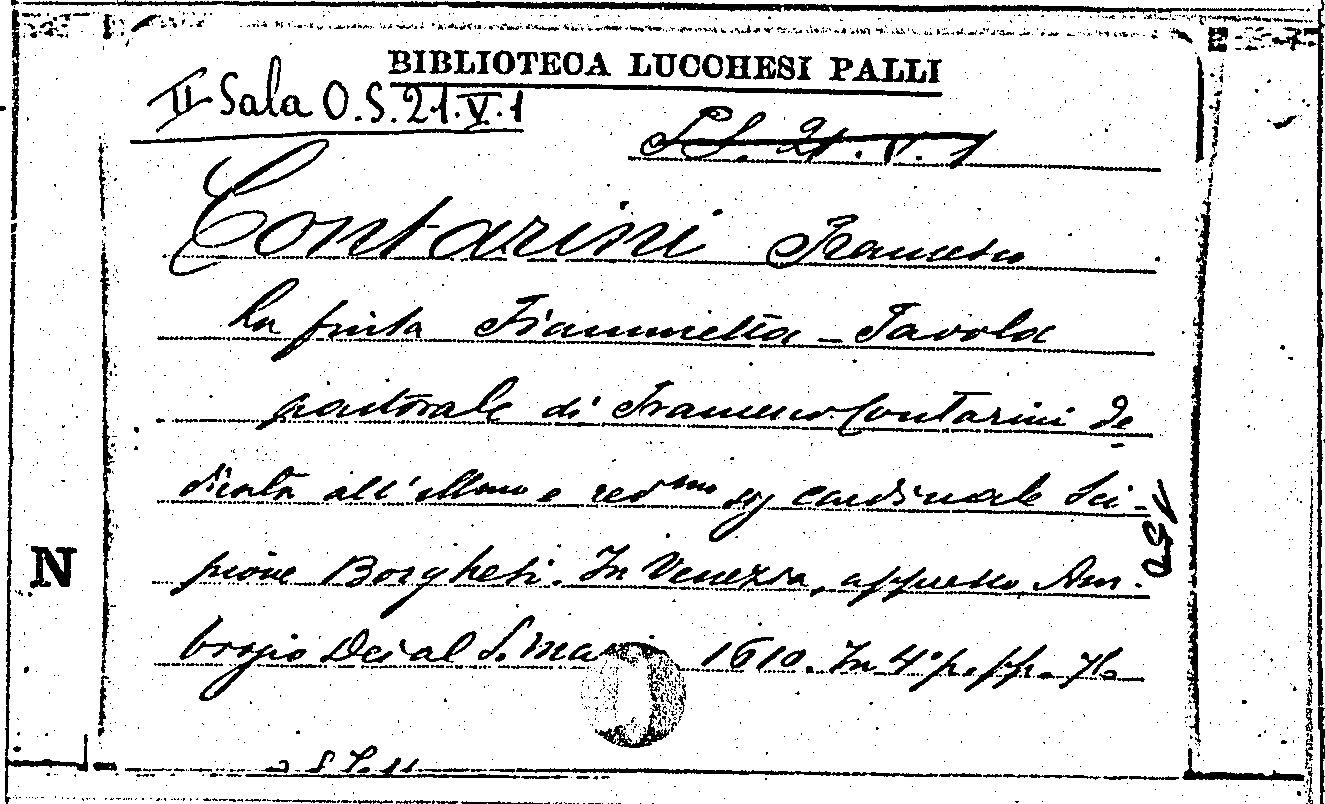 BIBLIOTECA LUCCHESI PALLI
II Sala O.S.21.V.1
21.V.1
Contarini Francesco
La finta Fiammetta - Favola
pastorale di Francesco Contarini de
dicata all'illmo e revmo sig cardinale Sci-
pione Borghesi. In Venezia, appresso Am-
brogio Dei al S. Marco 1610. In 4° p. pp.
N